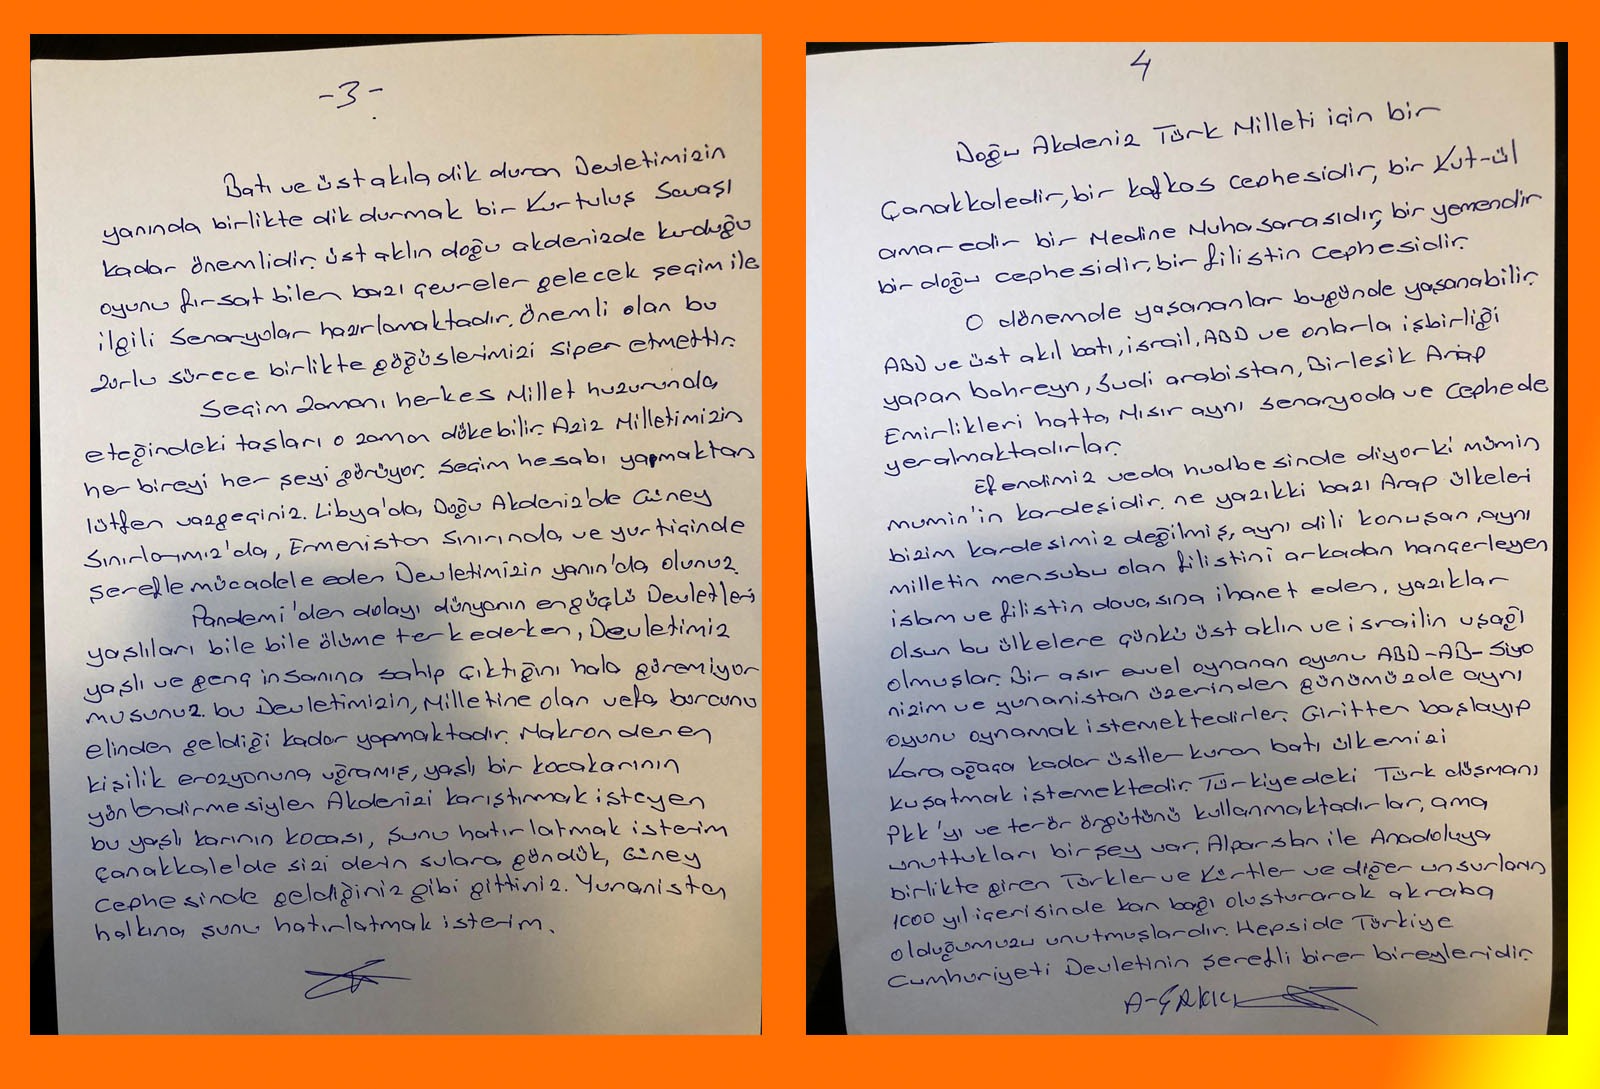 -3-
Batı ve üst akıla dik duran Devletimizin
yanında birlikte dik durmak bir Kurtuluş Savaşı
kadar önemlidir. üst aklın doğu akdenizde kurduğu
oyunu fırsat bilen bazı çevreler gelecek seçim ile
ilgili senaryolar hazırlamaktadır. Önemli olan bu
zorlu sürece birlikte göğüslerimizi siper etmettir.
Seçim zamanı herkes Millet huzurunda
eteğindeki taşları o zaman dökebilir. Aziz Milletimizin
her bireyi her şeyi görüyor. seçim hesabı yapmaktan
lütfen vazgeçiniz. Libya'da, Doğu Akdeniz'de Güney
Sınırlarımız'da, Ermenistan sınırında, ve yurtiçinde
şerefle mücadele eden Devletimizin yanın'da olunuz.
Pandemi'den dolayı dünyanın en güçlü Devletleri
yaşlıları bile bile ölüme terk ederken, Devletimiz
yaşlı ve genç insanına sahip çıktığını hala göremiyor
musunuz. bu Devletimizin, Milletine olan vefa borcunu
elinden geldiği kadar yapmaktadır. Makron denen
kişilik erozyonuna uğramış, yaşlı bir kocakarının
yönlendirmesiylen Akdenizi karıştırmak isteyen
bu yaşlı karının kocası, şunu hatırlatmak isterim
Çanakkale'de sizi derin sulara gömdük, Güney
Cephesinde geldiğiniz gibi gittiniz. Yunanistan
halkına şunu hatırlatmak isterim.
4
Doğu Akdeniz Türk Milleti için bir
Çanakkaledir, bir kafkas cephesidir, bir Kut-ül
amaredir bir Medine Muhasarasıdır, bir yemendir
bir doğu cephesidir, bir filistin Cephesidir.
O dönemde yaşananlar bugünde yaşanabilir.
ABD ve üst akıl batı, israil, ABD ve onlarla işbirliği
yapan bahreyn, Sudi arabistan, Birleşik Arap
Emirlikleri hatta, Mısır aynı senaryoda ve Cephede
yeralmaktadırlar.
Efendimiz veda hudbesinde diyorki mümin
mumin'in kardeşidir. ne yazıkki bazı Arap ülkeleri
bizim kardeşimiz değilmiş, aynı dili konuşan, aynı
milletin mensubu olan filistini arkadan hançerleyen
islam ve filistin davasına ihanet eden, yazıklar
olsun bu ülkelere çünkü üst aklın ve israilin uşağı
olmuşlar. Bir asır evvel oynanan oyunu ABD-AB-Siyo
nizim ve yunanistan üzerinden günümüzde aynı
oyunu oynamak istemektedirler. Giritten başlayıp
Kara ağaça kadar üstler kuran batı ülkemizi
kuşatmak istemektedir. Türkiyedeki Türk düşmanı
PKK'yı ve terör örgütünü kullanmaktadırlar, ama
unuttukları birşey var, Alparslan ile Anadoluya
birlikte giren Türkler ve Kürtler ve diğer unsurların
1000 yıl içerisinde kan bağı oluşturarak akraba
olduğumuzu unutmuşlardır. Hepside Türkiye
Cumhuriyeti Devletinin şerefli birer bireyleridir.